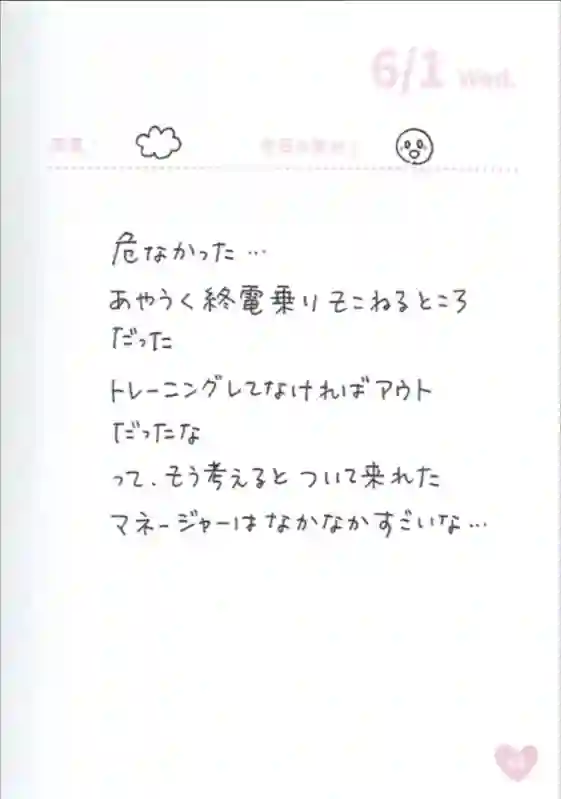 6/1 Wed.
危なかった…
あやうく終電乗りそこねるところ
だった
トレーニングしてなければアウト
だったな
って、そう考えると ついて来れた
マネージャーはなかなかすごいな…